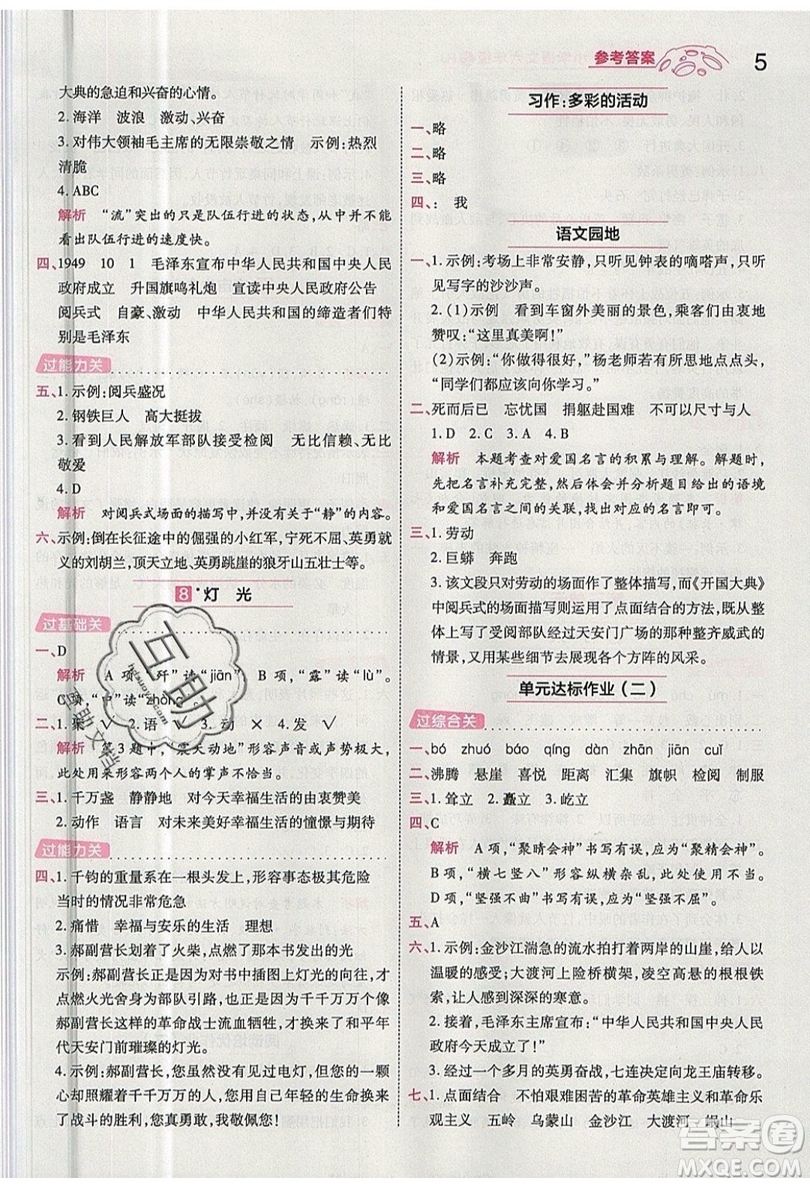 参考答案 5
大典的急迫和兴奋的心情。
2. 海洋 波浪 激动、兴奋
3. 对伟大领袖毛主席的无限崇敬之情 示例:热烈
清脆
4. ABC
解析 “流”突出的只是队伍行进的状态,从中并不能
看出队伍行进的速度快。
四、1949 10 1 毛泽东宣布中华人民共和国中央人民
政府成立 升国旗鸣礼炮 宣读中央人民政府公告
阅兵式 自豪、激动 中华人民共和国的缔造者们特
别是毛泽东
过能力关
五、1. 示例:阅兵盛况
2. 钢铁巨人 高大挺拔
3. 看到人民解放军部队接受检阅 无比信赖、无比
敬爱
4. D
解析 对阅兵式场面的描写中,没有关于“静”的内容。
六、示例:倒在长征途中的倔强的小红军,宁死不屈、英勇就
义的刘胡兰,顶天立地、英勇跳崖的狼牙山五壮士等。
8*灯 光
过基础关
一、D
解析 A项,“歼”读“jiān”。B项,“露”读“lù”。
C项,“中”读“zhōng”。
二、1. 渠 √ 2. 语 √ 3. 动 × 4. 发 √
解析 第3题中,“震天动地”形容声音或声势极大,
此处形容两个人的掌声不恰当。
三、1. 千万盏 静静地 对今天幸福生活的由衷赞美
2. 动作 语言 对未来美好幸福生活的憧憬与期待
过能力关
四、1. 千钧的重量系在一根头发上,形容事态极其危险
当时的情况非常危急
2. 痛惜 幸福与安乐的生活 理想
3. 郝副营长划着了火柴,点燃了那本书发出的光
示例:郝副营长因为对书中插图上灯光的向往,才
点燃火柴为部队引路,也正因为有了千千万万个
郝副营长这样的革命战士流血牺牲,才有了和平年
代天安门前璀璨的灯光。
4. 示例:郝副营长,您虽然没有见过电灯,但您的一颗
心却照耀着千千万万的革命者,为他们引路,并取得
了战斗的胜利,您真勇敢,我敬佩您!
习作:多彩的活动
一、略
二、略
三、略
四、: 我
语文园地
一、1. 示例:考场上非常安静,只听见钟表的嘀嗒声,只听
见写字的沙沙声。
2. (1)示例 看到车窗外美丽的景色,乘客们由衷地
赞叹:“这里真美啊!”
(2)示例:“你做得很好。”杨老师若有所思地点点头,
“同学们都应该向你学习。”
二、死而后已 忘忧国 捐躯赴国难 不可以尺寸与人
1. D 2. C 3. A 4. B
解析 本题考查对爱国名言的积累与理解。解题时,
先把名言补充完整,然后分析题目给出的语境
和爱国名言之间的关联,找出对应的名言即可。
三、1. 劳动
2. 巨蟒 奔跑
3. 该文段对劳动的场面作了整体描写,而《开国大典》
中阅兵式的描写运用了点面结合的方法,不仅从整
体上描写了受阅部队经过天安门广场的整齐威武的
情景,还具体描写了各个方阵的风采。
单元达标作业(二)
过综合关
一、bó zhuó báo qíng dàn zhān jiān cuī
二、沸腾 悬崖 喜悦 距离 汇集 旗帜 检阅 制服
三、1. 耸立 2. 矗立 3. 屹立
四、C
解析 A项,“聚晴会神”书写有误,应为“聚精会神”。
B项,“横七竖八”形容纵横杂乱,用在此处不恰当。
D项,“坚强不曲”书写有误,应为“坚强不屈”。
五、A
六、1. 示例:金沙江湍急的流水拍打着两岸的山崖,给人以
温暖的感觉;大渡河上险桥横架,晃动着的根根铁
索,让人感到深深的寒意。
2. 接着,毛泽东主席宣布:“中华人民共和国中央人民
政府今天成立了!”
3. 经过一个多月的英勇奋战,七连决定向龙王庙转移。
七、1. 点面结合 不怕艰难困苦的革命英雄主义和革命乐
观主义 五岭 乌蒙山 金沙江 大渡河 岷山
互助
互助文档
答案圈
MXQE.COM